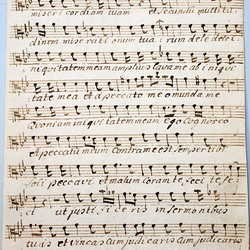 misericordiam tuam et secundu multitu
dinem miserationum tua rum dele deini
iniquitatem meam amplius lavame ab iniqui
tate mea et a peccato meo munda me
quoniam iniquitatem meam ego cognosco
et peccatum meum contra me est semper tibi
soli peccavi et malum coram te feci te fe
ci ut justi fi ce ris in sermonibus
tuis et vincas cum judicaris cum judicaris